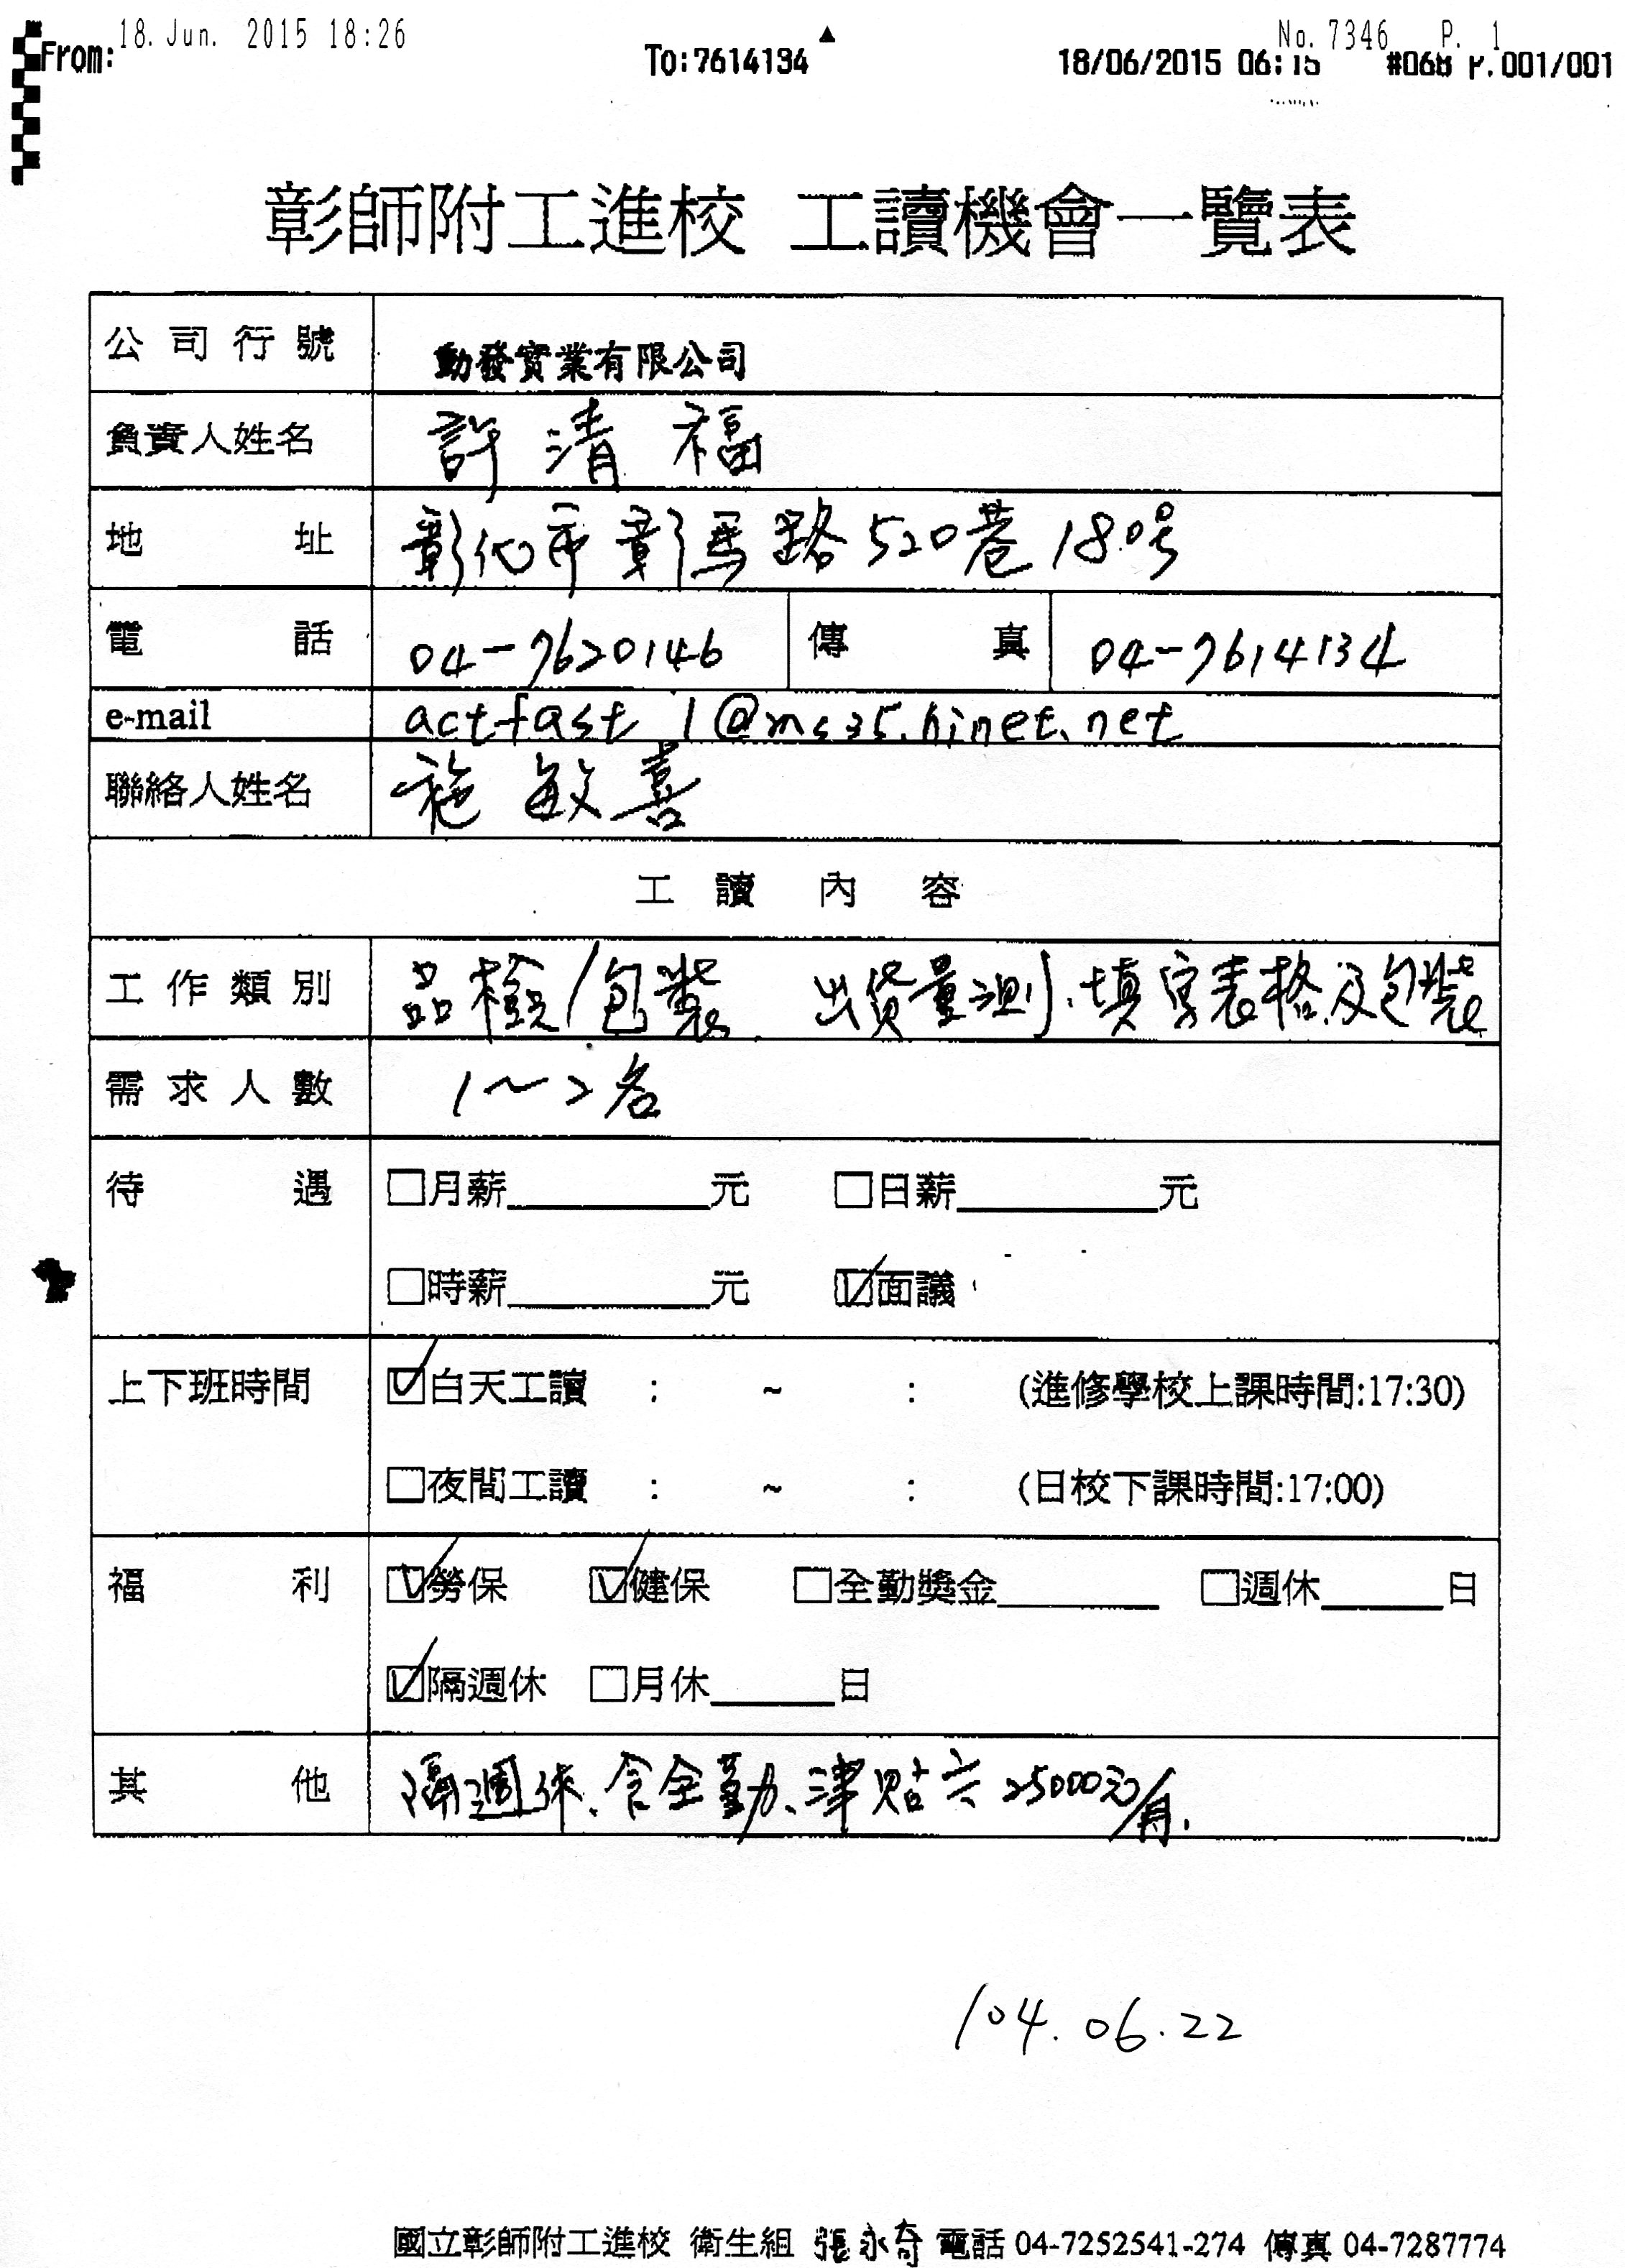 18. Jun. 2015 18:26 No. 7346 P. 1
From: To:7614134 18/06/2015 06:15 #068 P.001/001
彰師附工進校 工讀機會一覽表
公司行號 動發實業有限公司
負責人姓名 許清福
地址 彰化市彰馬路520巷180号
電話 04-7620146 傳真 04-7614134
e-mail actfast1@ms35.hinet.net
聯絡人姓名 施敏喜
工讀內容
工作類別 品檢/包裝 出貨量測、填寫表格及包裝
需求人數 1～2名
待遇 □月薪____元 □日薪____元
□時薪____元 ☑面議
上下班時間 ☑白天工讀 : ~ : (進修學校上課時間:17:30)
□夜間工讀 : ~ : (日校下課時間:17:00)
福利 ☑勞保 ☑健保 □全勤獎金____ □週休____日
☑隔週休 □月休____日
其他 隔週休、含全勤、津貼共25000元/月.
104.06.22
國立彰師附工進校 衛生組 張永奇 電話 04-7252541-274 傳真 04-7287774